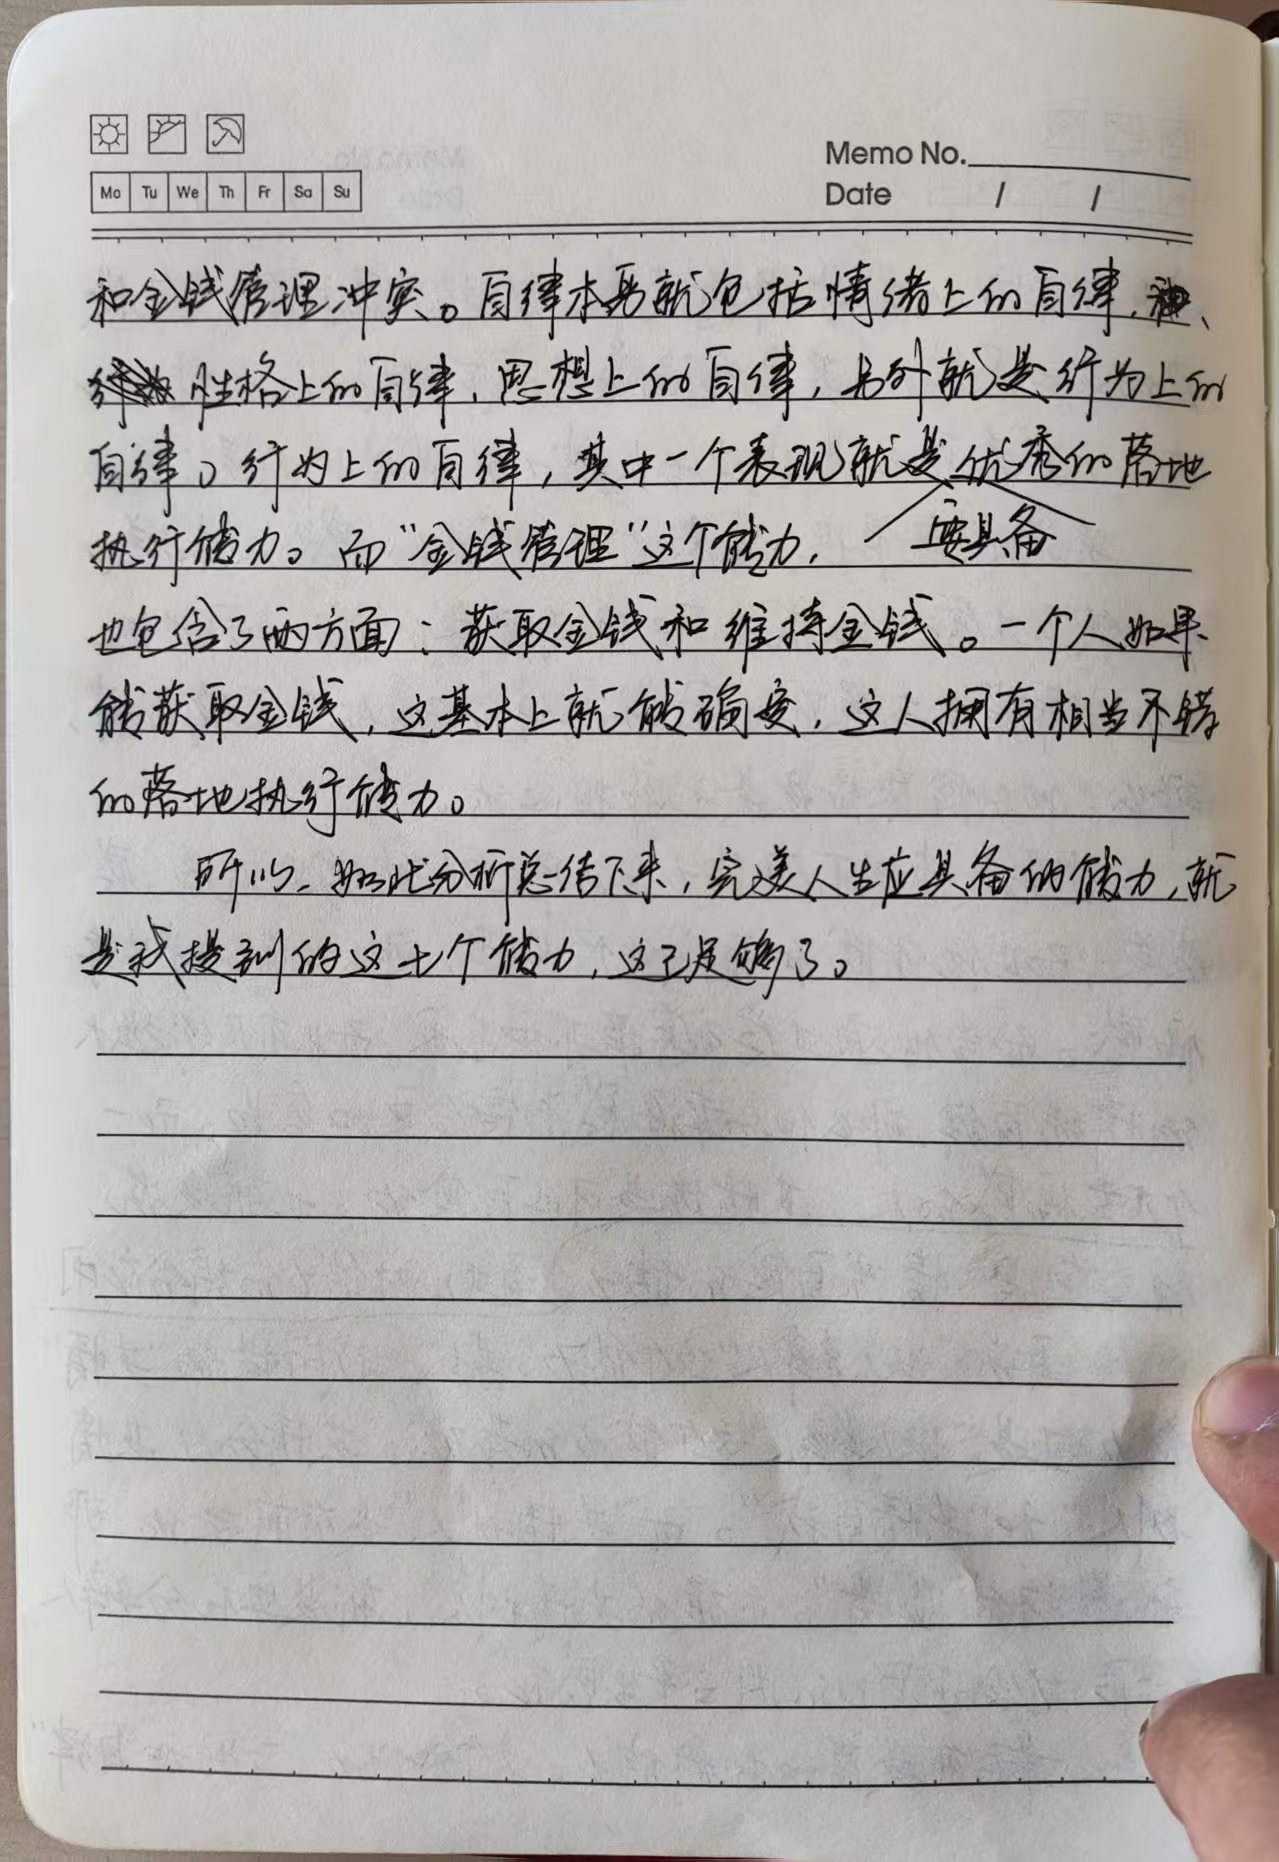 Memo No.
Mo Tu We Th Fr Sa Su
Date / /
和金钱管理冲突。自律本身就包括情绪上的自律、
性格上的自律、思想上的自律,另外就是行为上的
自律。行为上的自律,其中一个表现就是优秀的落地
要具备
执行能力。而“金钱管理”这个能力,
也包含了两方面:获取金钱和维持金钱。一个人如果
能获取金钱,这基本上就能确定,这人拥有相当不错
的落地执行能力。
所以,如此分析总结下来,完美人生应具备的能力,就
是我提到的这七个能力,这已足够了。